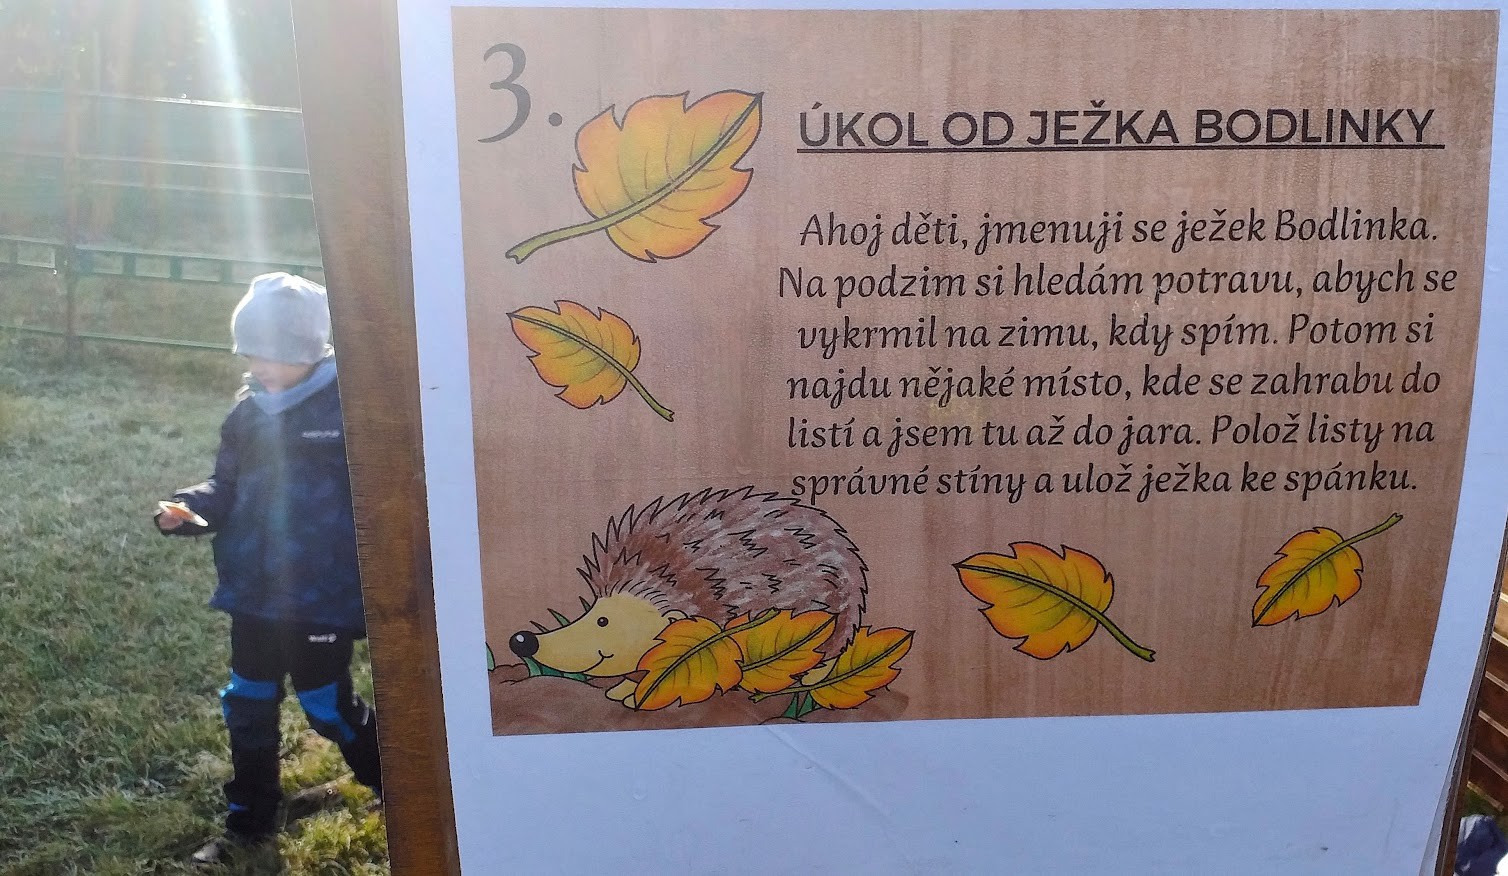 3.
ÚKOL OD JEŽKA BODLINKY
Ahoj děti, jmenuji se ježek Bodlinka.
Na podzim si hledám potravu, abych se
vykrmil na zimu, kdy spím. Potom si
najdu nějaké místo, kde se zahrabu do
listí a jsem tu až do jara. Polož listy na
správné stíny a ulož ježka ke spánku.